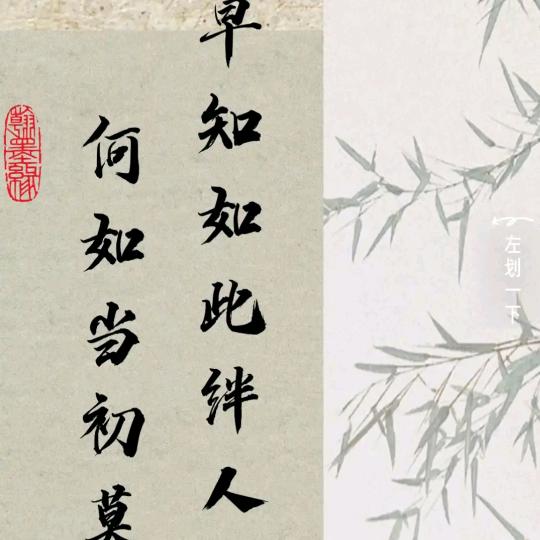 早知如此绊人
何如当初莫
翰墨缘
左划一下